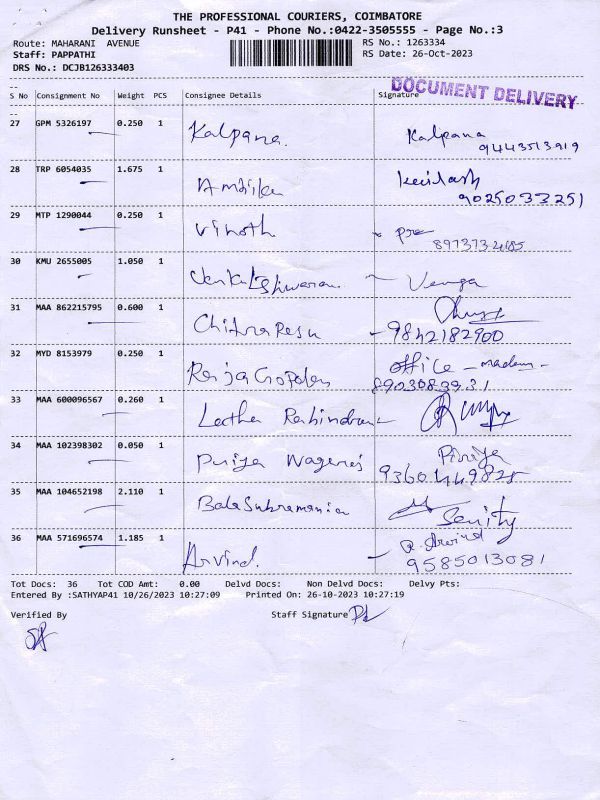 THE PROFESSIONAL COURIERS, COIMBATORE
Delivery Runsheet - P41 - Phone No.:0422-3505555 - Page No.:3
Route: MAHARANI AVENUE RS No.: 1263334
Staff: PAPPATHI RS Date: 26-Oct-2023
DRS No.: DCJB126333403
DOCUMENT DELIVERY
S No Consignment No Weight PCS Consignee Details Signature
27 GPM 5326197 0.250 1 Kalpana. Kalpana
9443513919
28 TRP 6054035 1.675 1 Ambika
9025033251
29 MTP 1290044 0.250 1 Vinoth
30 KMU 2655005 1.050 1 Venkateshwaran Venga
31 MAA 862215795 0.600 1 Chitra
9842182900
32 MYD 8153979 0.250 1 Raja Gopalan office - madam
8903083931
33 MAA 600096567 0.260 1 Leetha Rabindran
34 MAA 102398302 0.050 1 Puriya Priya
9360449825
35 MAA 104652198 2.110 1 Bala Subramania
36 MAA 571696574 1.185 1 Arvind. R. Arvind
9585013081
Tot Docs: 36 Tot COD Amt: 0.00 Delvd Docs: Non Delvd Docs: Delvy Pts:
Entered By :SATHYAP41 10/26/2023 10:27:09 Printed On: 26-10-2023 10:27:19
Verified By Staff Signature